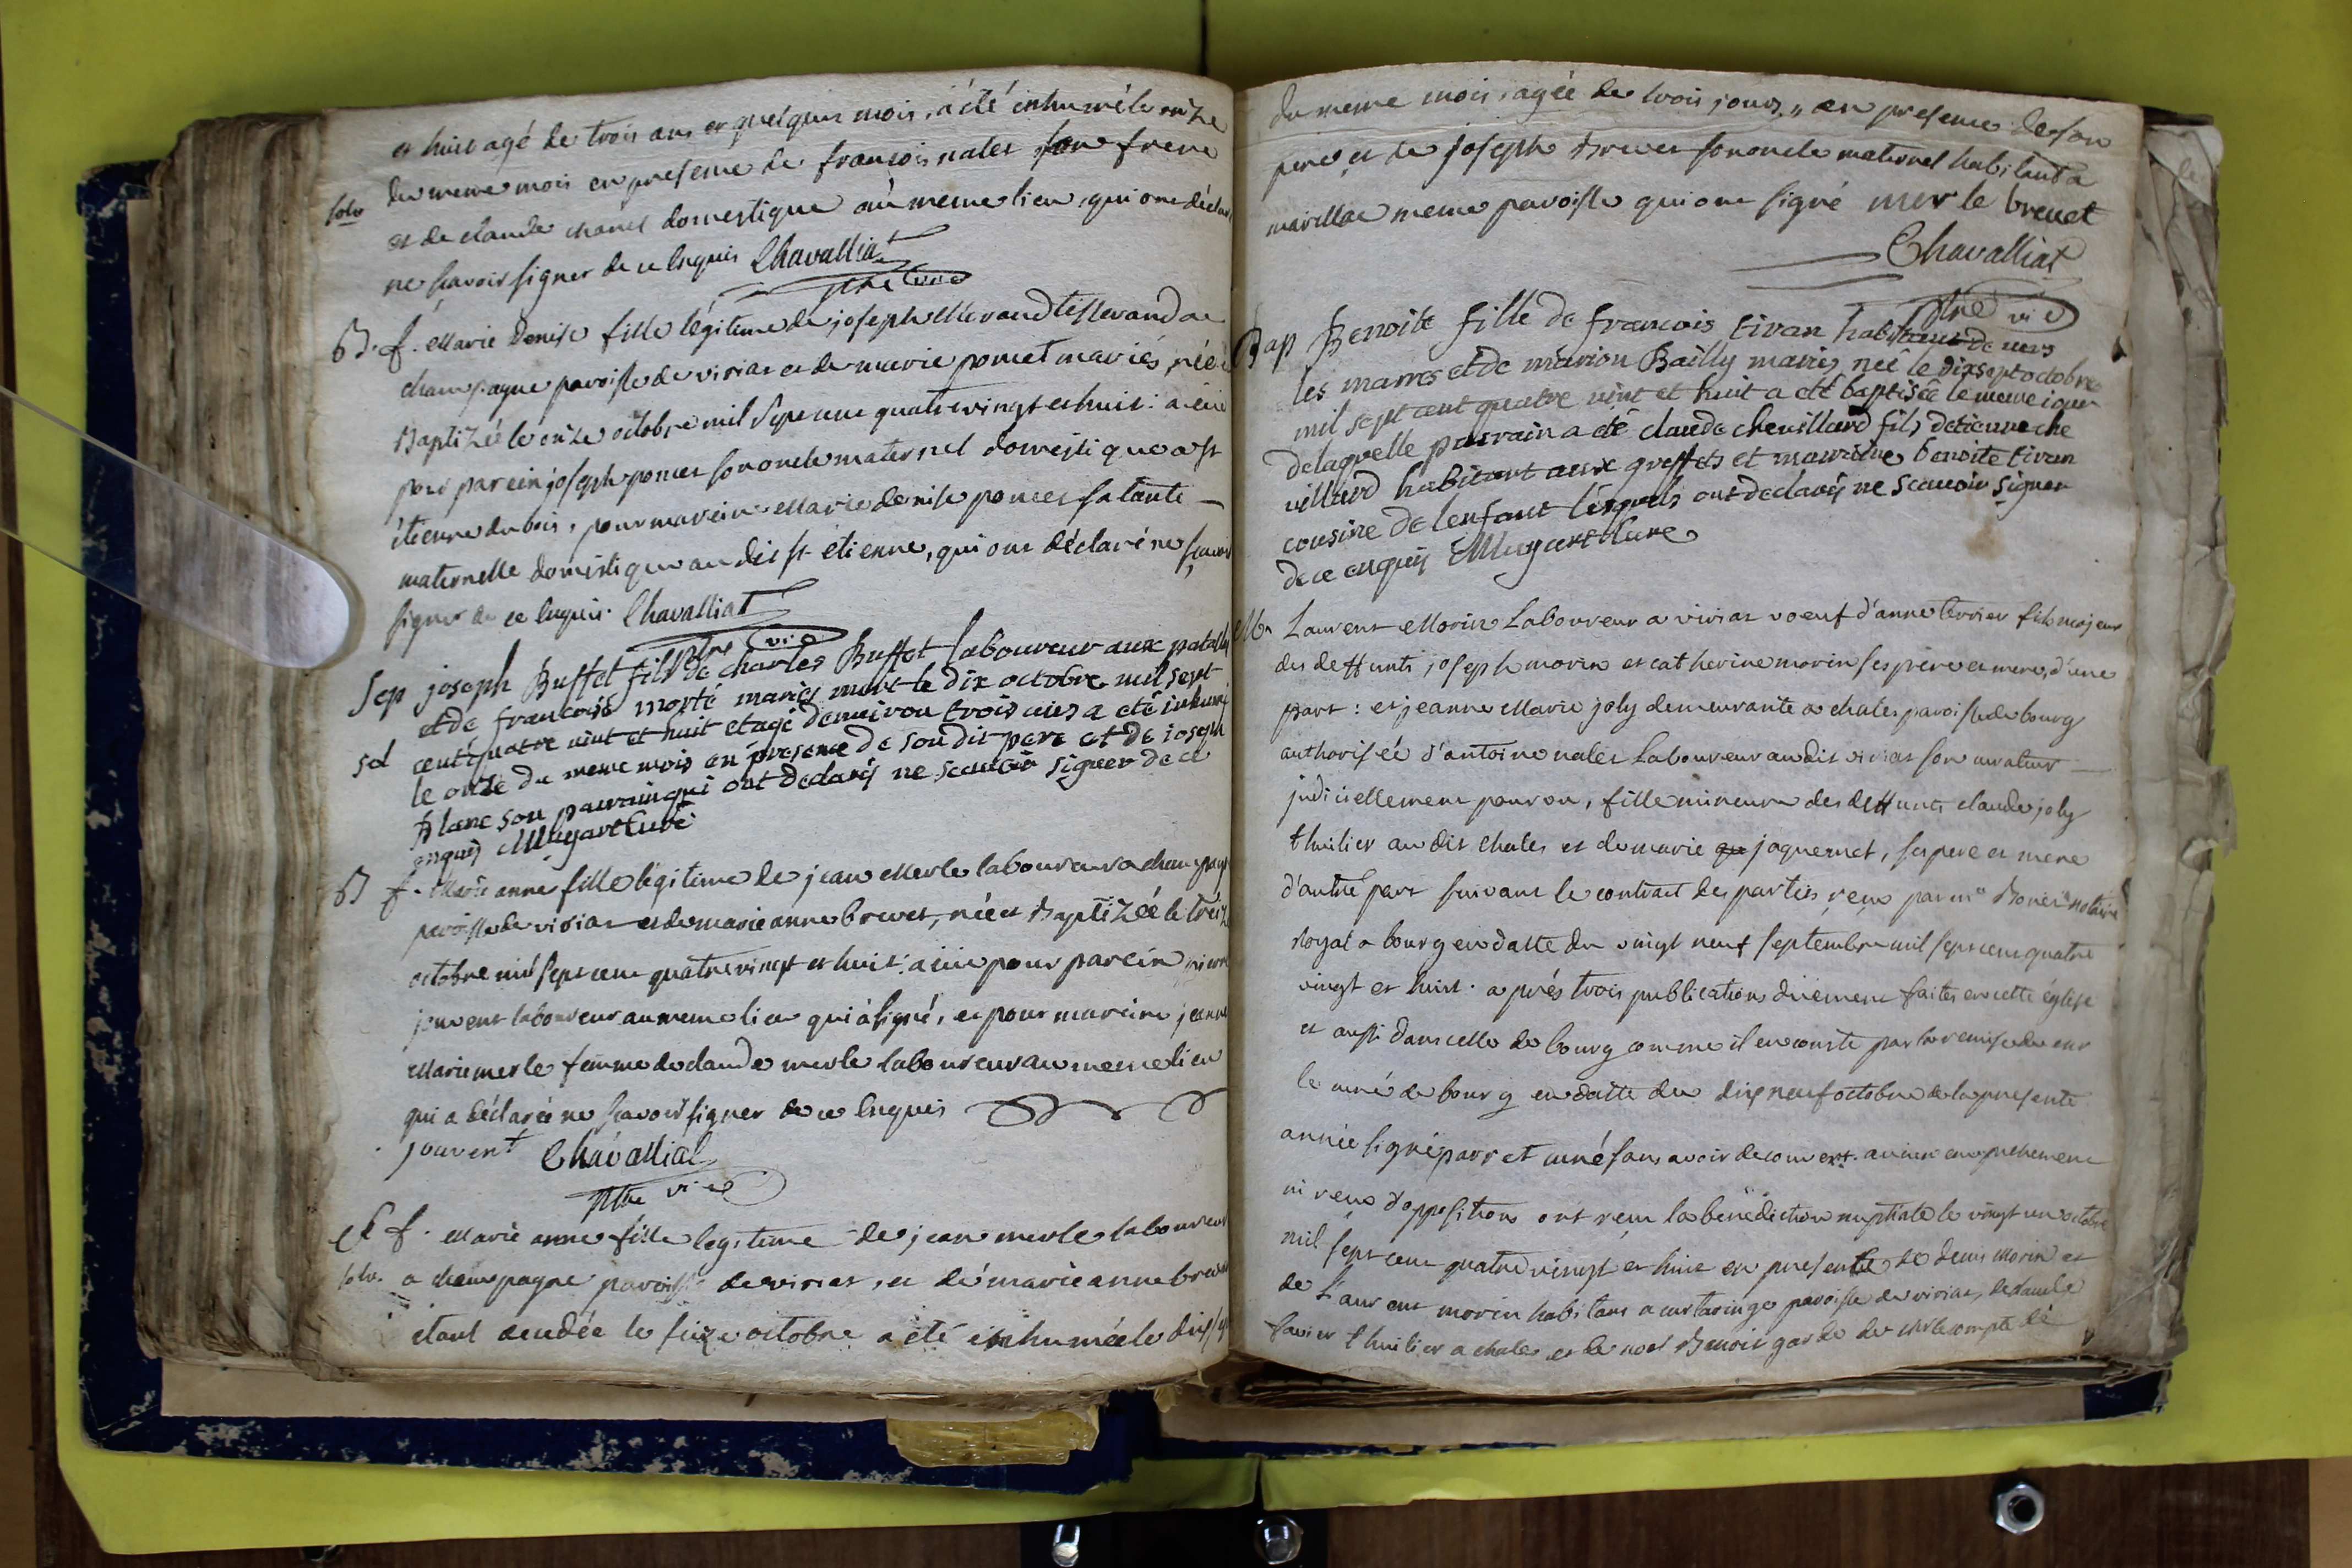 et huit agé de trois ans et quelques mois, a été inhumé le onze
du meme mois en presence de francois nales son frere
solv
et de claude chanel domestique au meme lieu, qui ont déclaré
ne scavoir signer de ce enquis Chavalliat
ptre vic
B. f. Marie Denise fille légitime de joseph Meraud tisserand a
champagne paroisse de viriat et de marie poncet mariés, née et
Baptizée le onze octobre mil sept cent quatre vingt et huit : a eu
pour parein joseph poncet son oncle maternel domestique a st
étienne du bois, pour mareine Marie denise poncet sa tante
maternelle domestique au dit st étienne, qui ont déclaré ne scavoir
signer de ce enquis. Chavalliat
ptre vic
Sep joseph Buffet fils de charles Buffet laboureur aux
et de francoise morté mariés mort le dix octobre mil sept
sol cent quatre vint et huit et agé denviron trois ans a eté inhumé
le onze du meme mois en presence de son dit pere et de joseph
Blanc son parrain qui ont declarés ne scauoir signer de ce
enquis Mugart Curé
B f. Marie anne fille légitime de jean Merle laboureur a champagne
paroisse de viriat et de marie anne brevet, née et Baptizée le treize
octobre mil sept cent quatre vingt et huit : a eu pour parein pierre
jouvent laboureur au meme lieu qui a signé, et pour mareine jeanne
Marie merle femme de claude merle laboureur au meme lieu
qui a déclarée ne scavoir signer de ce enquis
jouvent Chavalliat
ptre vic
E f. Marie anne fille legitime de jean merle laboureur
solv. a champagne paroisse de viriat, et de marie anne brevet
étant decedée le seize octobre a été inhumée le dix sept
du meme mois, agée de trois jours, en presence de son
pere et de joseph Brevet son oncle maternel habitant a
marillac meme paroisse qui ont signé merle brevet
Chavalliat
ptre vic
Bap Benoite fille de francois tivan habitant de vers
les marres et de marion Bailly mariés neé le dix sept octobre
mil sept cent quatre vint et huit a eté baptiseé le meme iour
de laquelle parrain a eté claude chevillard fils detienne che
villard habitant aux greffets et marraine benoite tivan
cousine de lenfant lesquels ont declarés ne scauoir signer
de ce enquis Mugart Cure
M. Laurent Morin Laboureur a viriat voeuf d'anne terrier fils majeur
des deffunts joseph morin et catherine morin ses père et mere, d'une
part : et jeanne Marie joly demeurante a chales paroisse de bourg
authorisée d'antoine nales Laboureur au dit viriat son curateur
judiciellement pourvu, fille mineure des deffunts claude joly
thuilier au dit chales et de marie jaquemet, ses pere et mere
d'autre part suivant le contract des parties reçu par me Bonet notaire
Royal a bourg en datte du vingt neuf septembre mil sept cent quatre
vingt et huit. après trois publications duement faites en cette église
et aussi dans celle de bourg comme il en conste par la remise de mr
le curé de bourg en datte du dix neuf octobre de la presente
année signé curé sans avoir decouvert aucun empechement
ni reçu d'oppositions ont reçu la bénédiction nuptiale le vingt un octobre
mil sept cent quatre vingt et huit en presence de denis Morin et
de Laurent morin habitans a curtaringe paroisse de viriat, de claude
favier thuilier a chales et le noel Benoit garde de mr le compte de